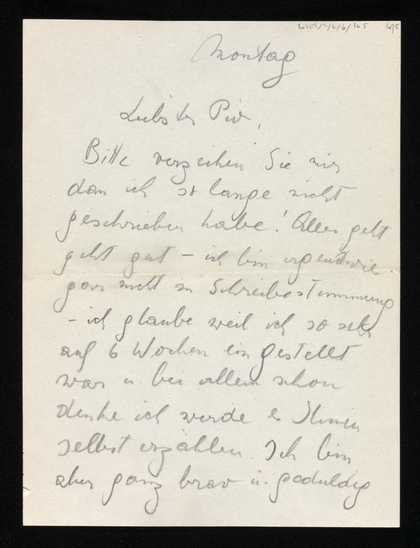 Montag
Liebster Piv,
Bitte verzeihen Sie mir
dan ich so lange nicht
geschrieben habe! Alles geht
geht gut – ich bin irgendwie
gar nicht in Schreibestimmung
– ich glaube weil ich so sehr
auf 6 Wochen eingestellt
war u bei allem schon
denke ich werde es Ihnen
selbst erzählen. Ich bin
aber ganz brav u. geduldig